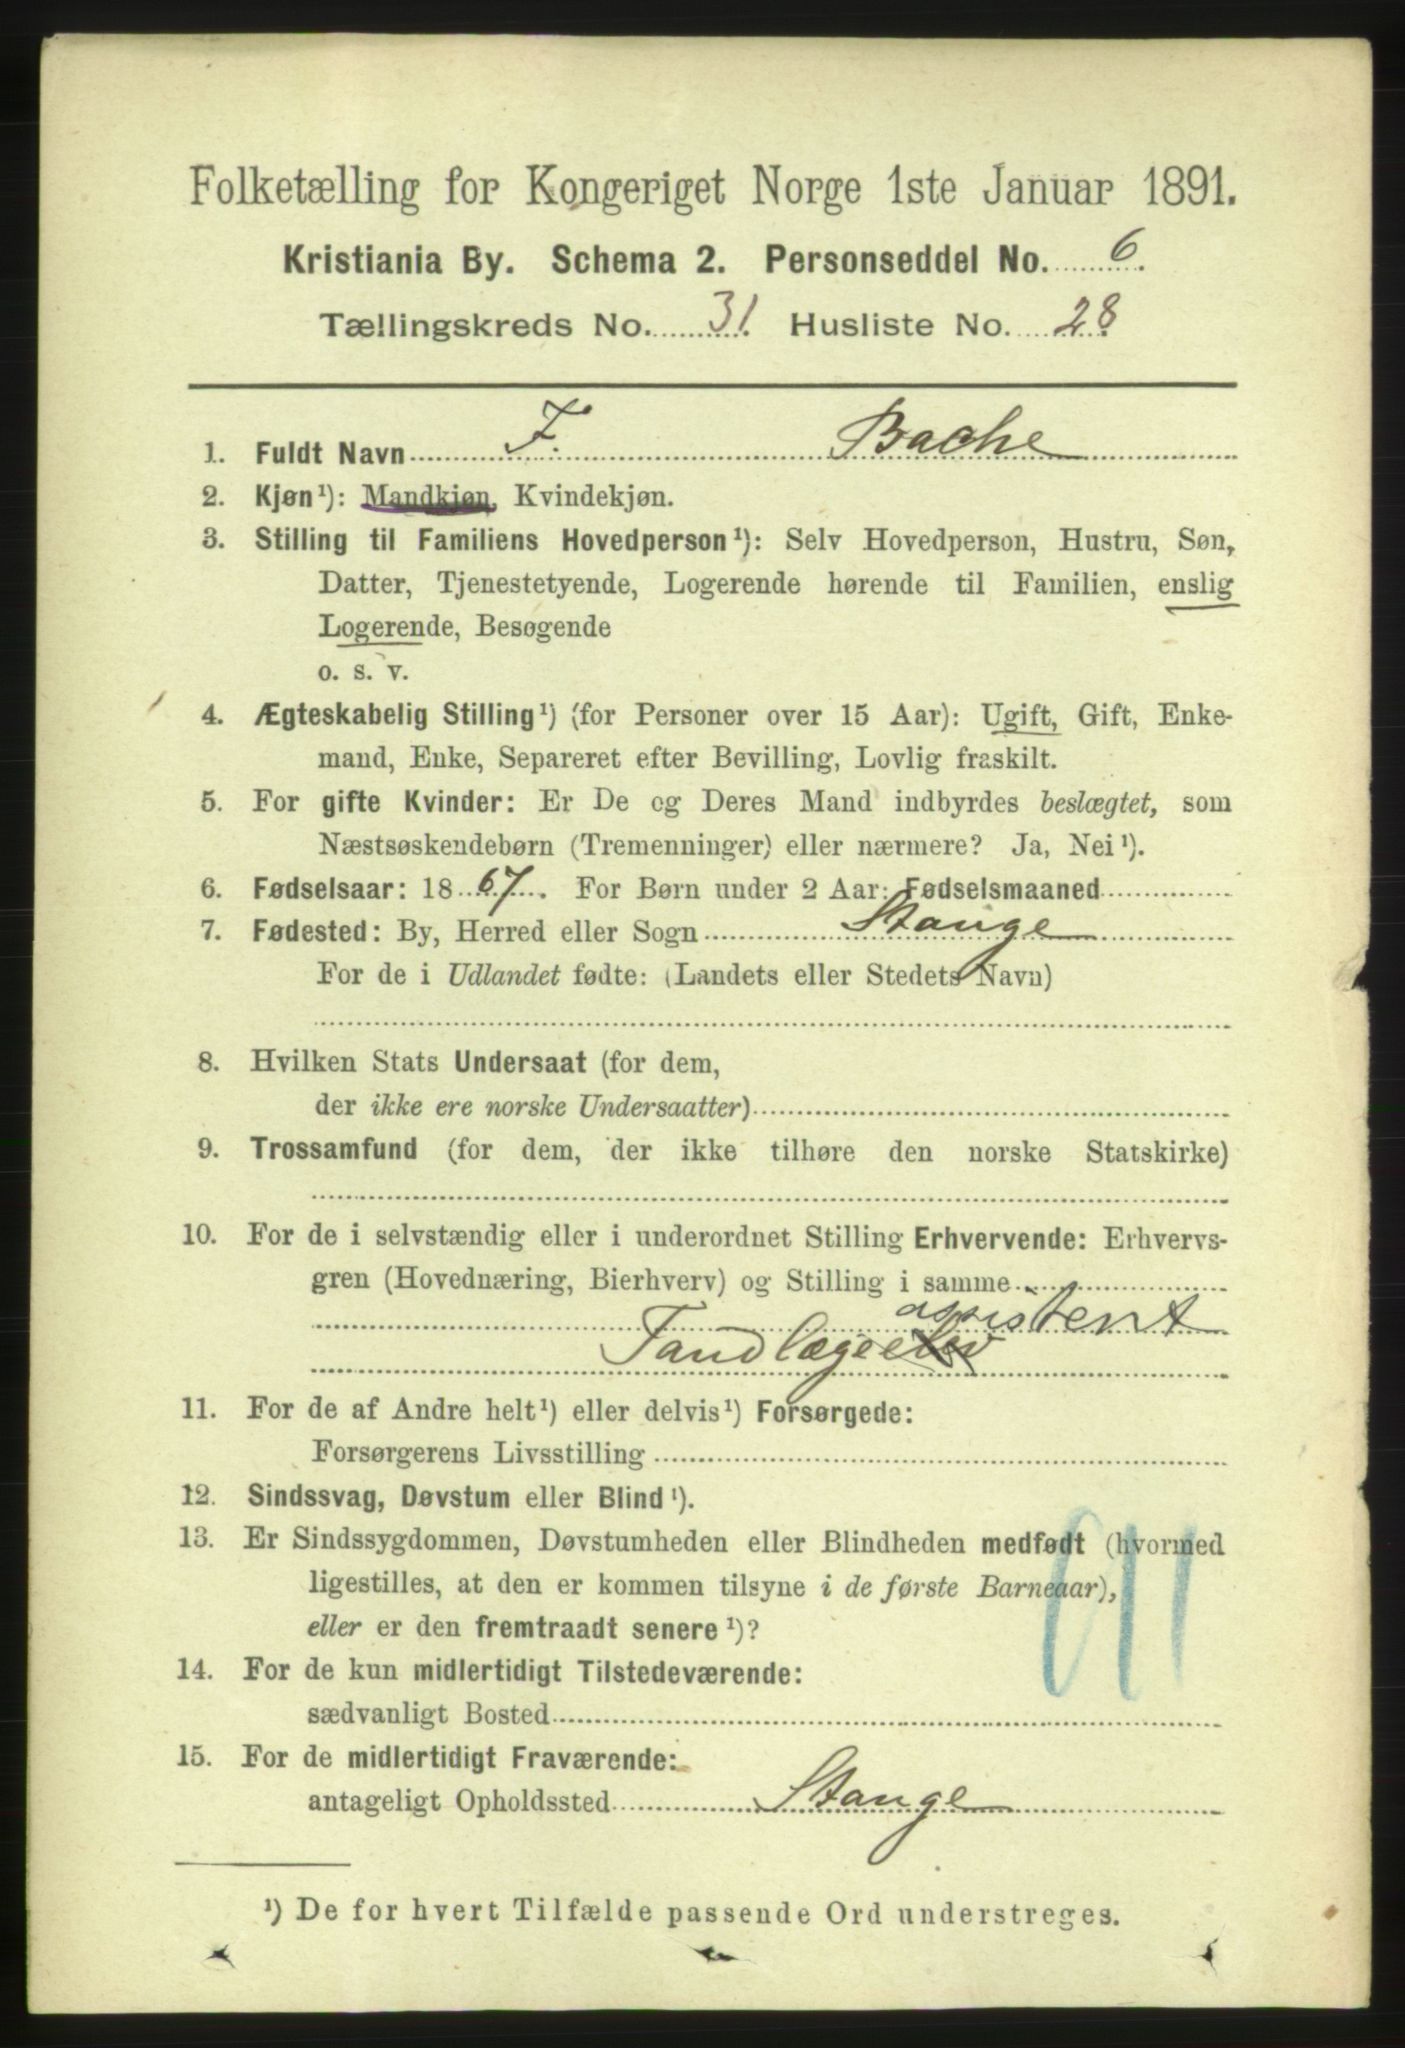 Folketælling for Kongeriget Norge 1ste Januar 1891.
Kristiania By. Schema 2. Personseddel No. 6.
Tællingskreds No. 31. Husliste No. 28.
1. Fuldt Navn F. Bache
2. Kjøn¹): Mandkjøn, Kvindekjøn.
3. Stilling til Familiens Hovedperson¹): Selv Hovedperson, Hustru, Søn,
Datter, Tjenestetyende, Logerende hørende til Familien, enslig
Logerende, Besøgende
o. s. v.
4. Ægteskabelig Stilling¹) (for Personer over 15 Aar): Ugift, Gift, Enke-
mand, Enke, Separeret efter Bevilling, Lovlig fraskilt.
5. For gifte Kvinder: Er De og Deres Mand indbyrdes beslægtet, som
Næstsøskendebørn (Tremenninger) eller nærmere? Ja, Nei¹).
6. Fødselsaar: 1867. For Børn under 2 Aar: Fødselsmaaned
7. Fødested: By, Herred eller Sogn Stange
For de i Udlandet fødte: (Landets eller Stedets Navn)
8. Hvilken Stats Undersaat (for dem,
der ikke ere norske Undersaatter)
9. Trossamfund (for dem, der ikke tilhøre den norske Statskirke)
10. For de i selvstændig eller i underordnet Stilling Erhvervende: Erhvervs-
gren (Hovednæring, Bierhverv) og Stilling i samme
assistent
Tandlægeelev
11. For de af Andre helt¹) eller delvis¹) Forsørgede:
Forsørgerens Livsstilling
12. Sindssvag, Døvstum eller Blind¹).
13. Er Sindssygdommen, Døvstumheden eller Blindheden medfødt (hvormed
ligestilles, at den er kommen tilsyne i de første Barneaar),
eller er den fremtraadt senere¹)?
14. For de kun midlertidigt Tilstedeværende:
sædvanligt Bosted
15. For de midlertidigt Fraværende:
antageligt Opholdssted Stange
¹) De for hvert Tilfælde passende Ord understreges.